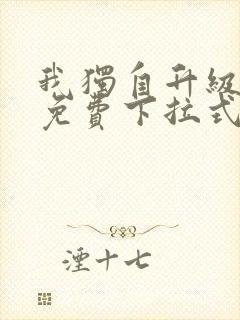 我獨自升級
免費下拉式
湮十七